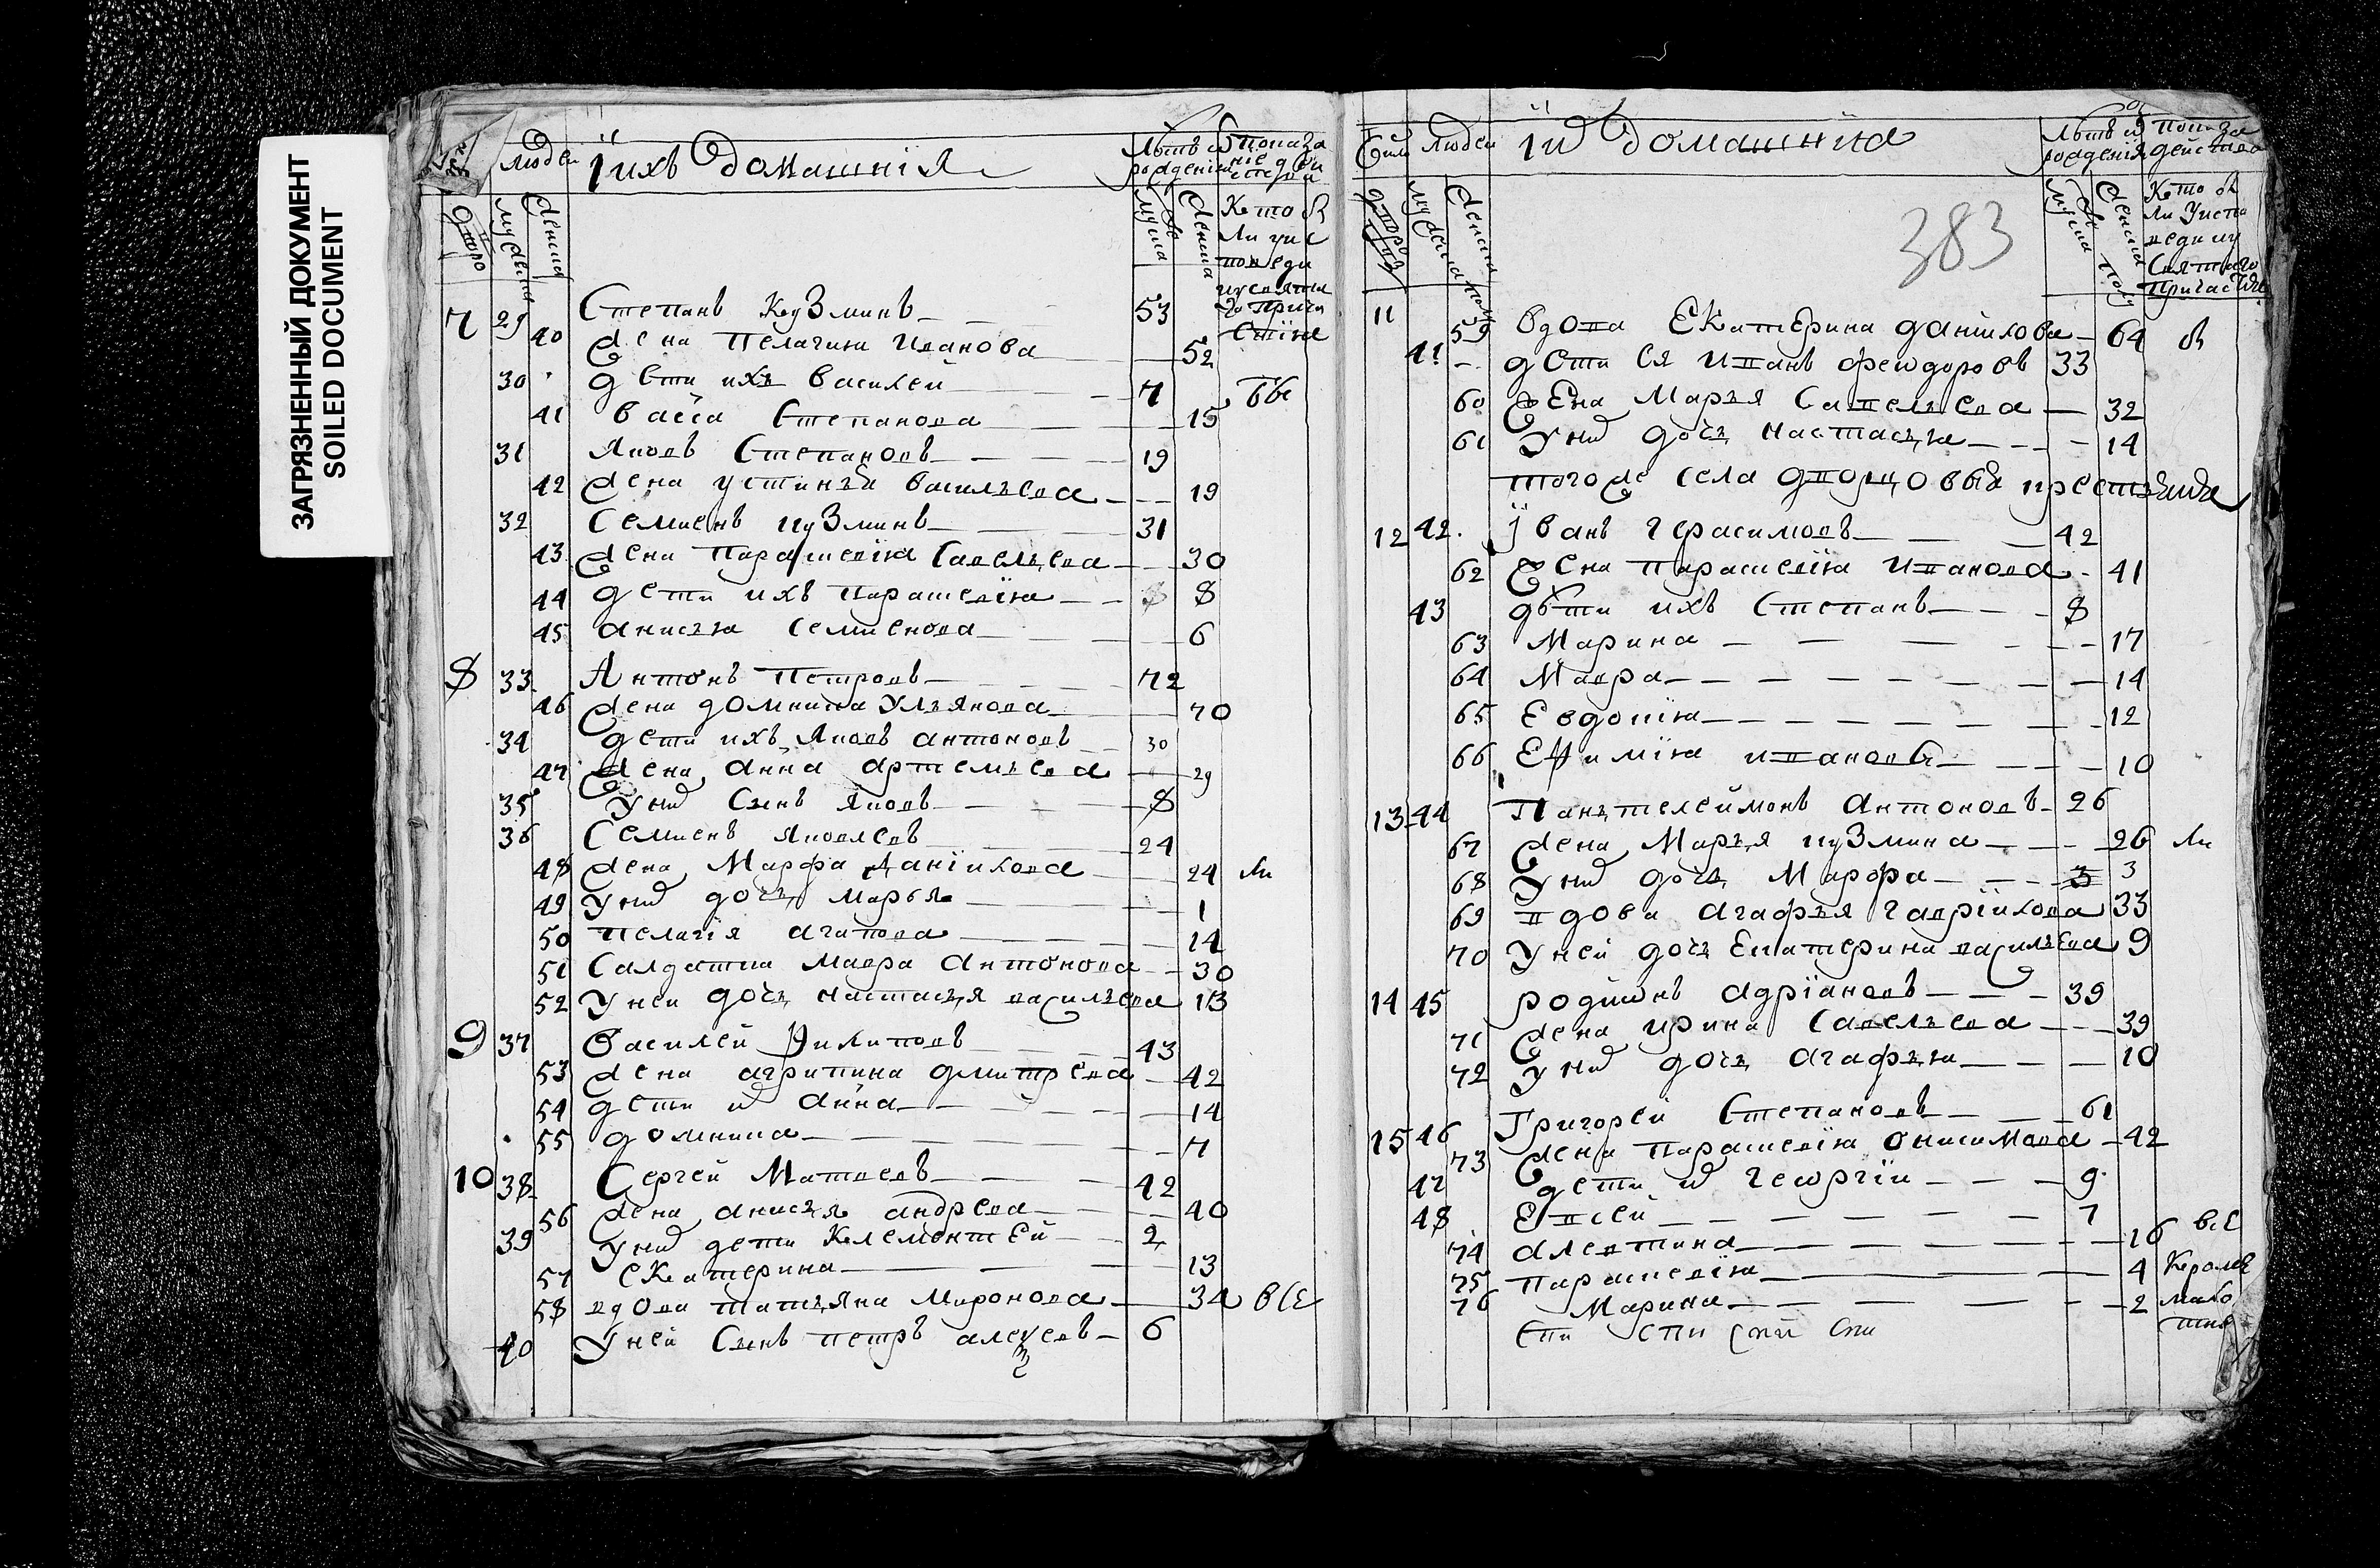 ЗАГРЯЗНЕННЫЙ ДОКУМЕНТ
SOILED DOCUMENT
людеи їихъ домашнїя лѣтъ ѿ рожденїя
7 29 Степанъ Кузминъ 53
40 жена Пелагиа Иванова 52
30 дѣти ихъ Василеи 7
41 Васса Степанова 15
31 Яковъ Степановъ 19
42 жена устинья Василъева 19
32 Семиенъ кузминъ 31
43 жена Парасковїа Савелъева 30
44 дети ихъ Парасковїа 8 8
45 анисъя Семиенова 6
8 33 Антонъ Петровъ 72
46 жена домника Улъянова 70
34 дети ихъ Яковъ антоновъ 30
47 жена анна артемъева 29
35 У нихъ Сынъ Яковъ 8
36 Семиенъ Яковлевъ 24
48 жена Марфа Данїилова 24
49 У нихъ дочъ Маръя 1
50 Пелагїя агапова 14
51 Салдатка Мавра Антонова 30
52 У неи дочъ Настасъя василъева 13
9 37 Василеи Филиповъ 43
53 жена агрипина дмитрева 42
54 дети ихъ анна 14
55 домника 7
10 38 Сергеи Матвеевъ 42
56 жена анисъя андрева 40
39 У нихъ дети Клементеи 2
57 екатерина 13
58 вдова татъяна Миронова 34 все
40 У неи Сынъ петръ алексеевъ 6
людеи їихъ домашнїа лѣтъ ѿ рожденїя
383
11 59 вдова Екатерина данїилова 64
41 дети ея Иванъ феѡдоровъ 33
60 жена Маръя Савелъева 32
61 У нихъ дочъ настасъя 14
тогоже села дворцовыя крестъяня
12 42 Їванъ Герасимовъ 42
62 жена парасковїа Иванова 41
43 дѣти ихъ Степанъ 8
63 Марина 17
64 Мавра 14
65 Евдокїа 12
66 Ефимїа иванова 10
13 44 Панътелеимонъ Антоновъ 26
67 жена Маръя кузмина 26
68 У нихъ дочъ Марфа 3 3
69 вдова агафъя гаврїилова 33
70 У неи дочъ Екатерина василъева 9
14 45 родїѡнъ адрїановъ 39
71 жена ирина Савелъева 39
72 У нихъ дочъ агафъя 10
15 46 Григореи Степановъ 61
73 жена парасковїа онисимова 42
47 дети ихъ геѡргїи 9
48 Евсеи 7
74 алевтина 16 все
75 парасковїа 4
76 Марина 2